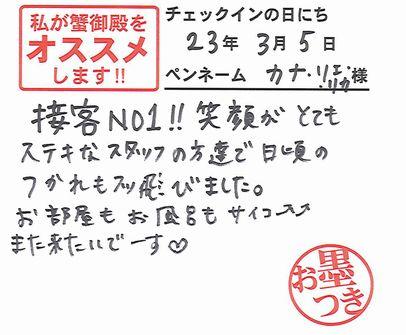 私が蟹御殿を
オススメ
します!!
チェックインの日にち
23年 3月 5日
ペンネーム カナ・リエ・リカ様
接客NO1!! 笑顔がとても
ステキなスタッフの方達で日頃の
つかれもスッ飛びました。
お部屋もお風呂もサイコー↗↗
また来たいでーす♡
お墨つき